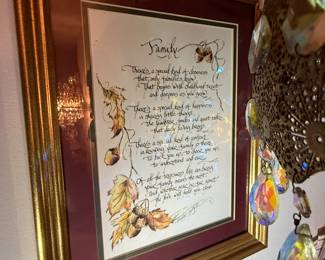 Family
There's a special kind of closeness
that only families know
That begins with childhood trust
and deepens as you grow
There's a special kind of happiness
in sharing little things
The laughter, smiles and quiet talks
that daily living brings
There's a special kind of comfort
in knowing your family is there
To back you up, to cheer you up,
to understand and care
Of all the treasures life can bring
your family means the most
and whether near or far apart